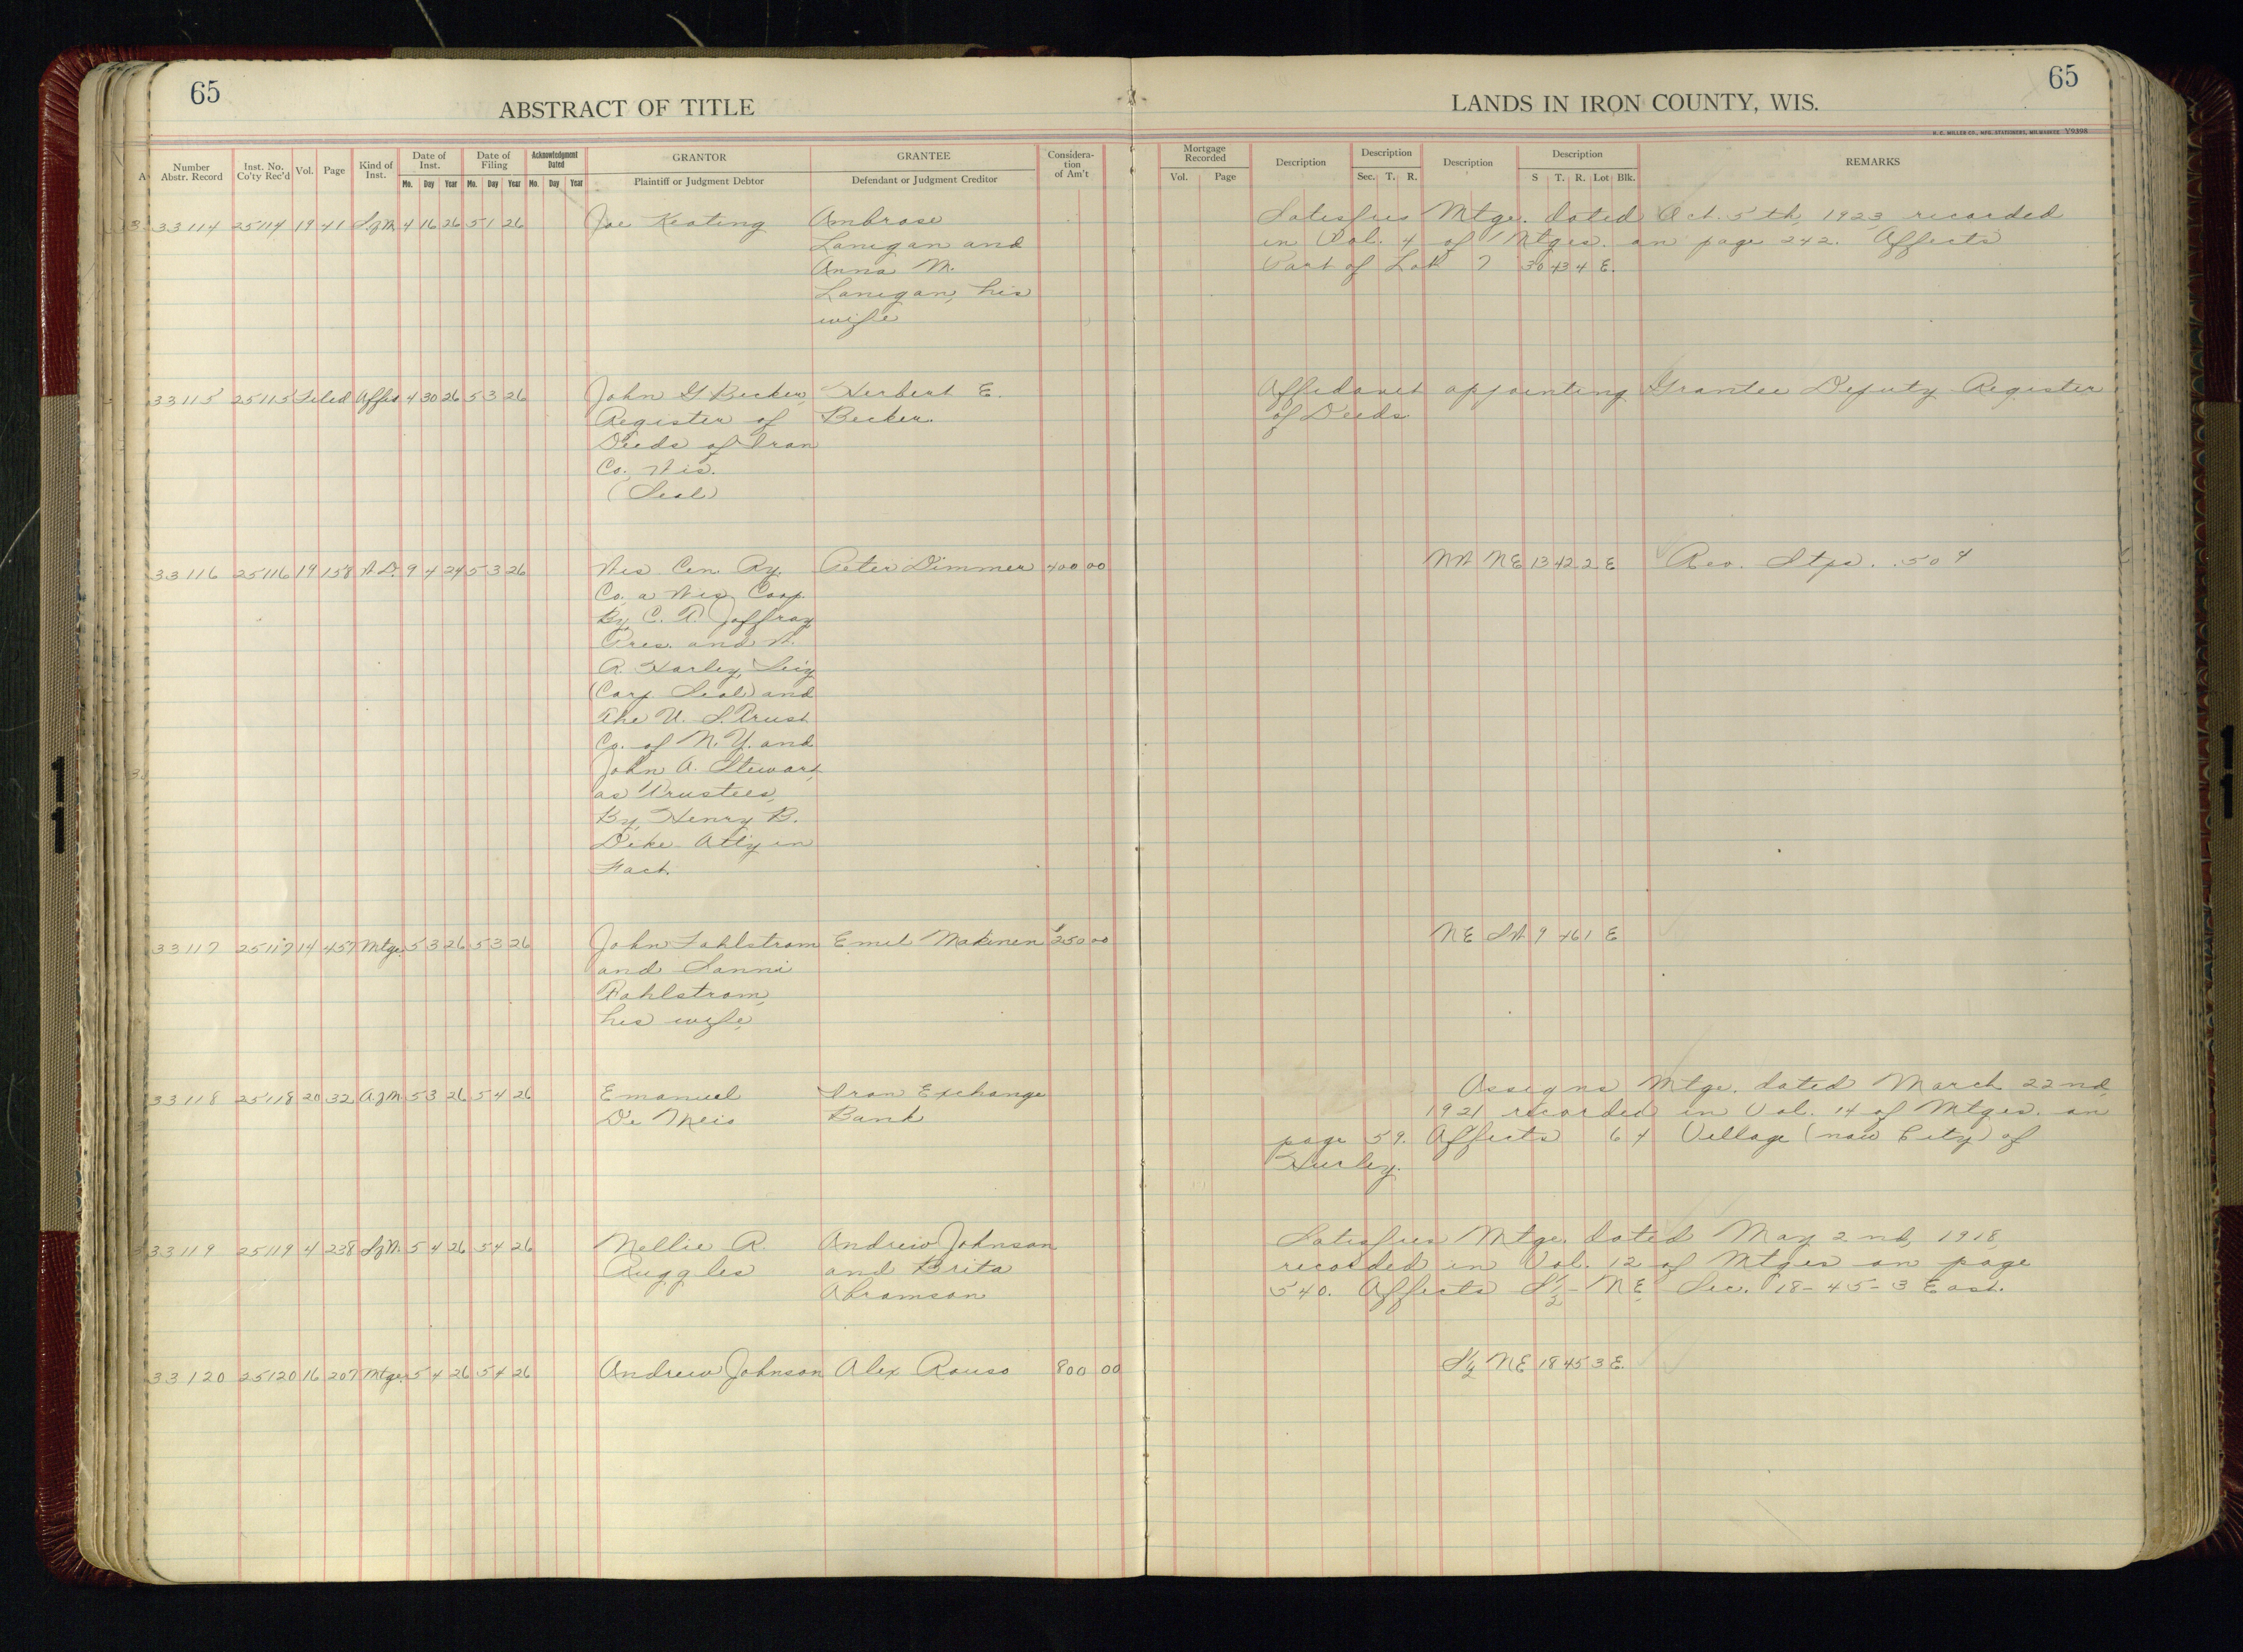 65
ABSTRACT OF TITLE
LANDS IN IRON COUNTY, WIS.
65
H. C. MILLER CO., MFG. STATIONERS, MILWAUKEE Y9398
Number Abstr. Record | Inst. No. Co'ty Rec'd | Vol. | Page | Kind of Inst. | Date of Inst. Mo. Day Year | Date of Filing Mo. Day Year | Acknowledgment Dated Mo. Day Year | GRANTOR Plaintiff or Judgment Debtor | GRANTEE Defendant or Judgment Creditor | Considera-tion of Am't | Mortgage Recorded Vol. Page | Description | Description Sec. T. R. | Description | Description S T. R. Lot Blk. | REMARKS
33114 25114 19 41 S.of M. 4 16 26 5 1 26 Joe Keating Ambrose Satisfies Mtge. dated Oct. 5th, 1923, recorded
Lanigan and in Vol. 4 of Mtges. on page 242. Affects
Anna M. Part of Lot 7 30 43 4 E.
Lanigan, his
wife
33115 25115 Filed Affid 4 30 26 5 3 26 John G Becker, Herbert E. Affidavit appointing Grantee Deputy Register
Register of Becker. of Deeds.
Deeds of Iron
Co. Wis.
(Seal)
33116 25116 19 158 W.D. 9 4 24 5 3 26 Wis Cen. Ry. Peter Dimmer 400 00 NW NE 13 42 2 E Rev. Stps. .50¢
Co. a Wis. Coop.
By C. T. Jaffray
Pres. and W.
R. Harley, Sec'y
(Corp Seal) and
The U. S. Trust
Co. of N. Y. and
John A. Stewart,
as Trustees,
By Henry B.
Dike Att'y in
Fact.
33117 25117 14 457 Mtge. 5 3 26 5 3 26 John Fahlstrom Emil Makinen $250 00 NE SW 9 46 1 E
and Sanni
Fahlstrom,
his wife
33118 25118 20 32 A.of M. 5 3 26 5 4 26 Emanuel Iron Exchange Assigns Mtge. dated March 22nd,
De Meio Bank 1921 recorded in Vol. 14 of Mtges. on
page 59. Affects 6 4 Village (now City) of
Hurley.
33119 25119 4 238 S.of M. 5 4 26 5 4 26 Nellie R. Andrew Johnson Satisfies Mtge. dated May 2nd, 1918,
Ruggles and Brita recorded in Vol. 12 of Mtges on page
Abramson 540. Affects S½-NE Sec. 18-45-3 East.
33120 25120 16 207 Mtge. 5 4 26 5 4 26 Andrew Johnson Alex Rouso 800 00 S½ NE 18 45 3 E.